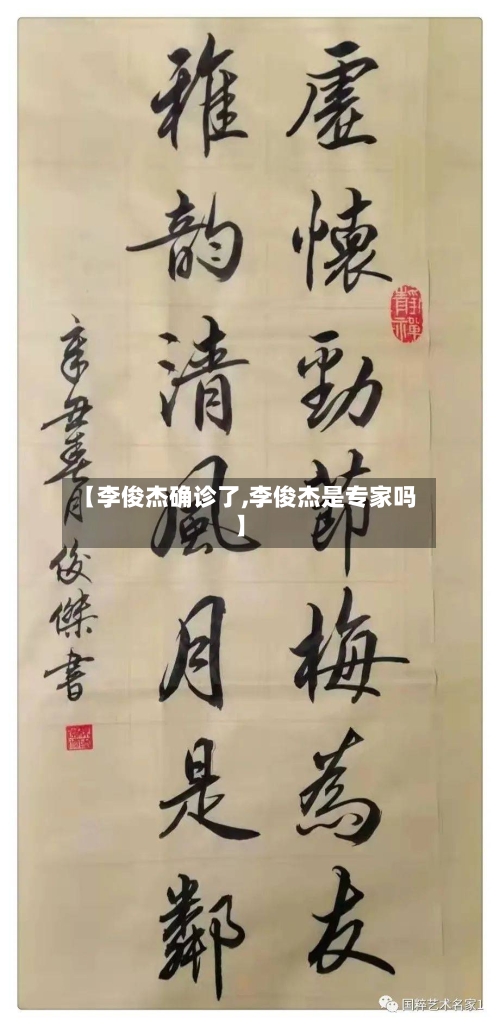 虛懷勁節梅為友
雅韵清風月是鄰
辛丑春月俊傑書
靜禪
【李俊杰确诊了,李俊杰是专家吗
】
国粹艺术名家1